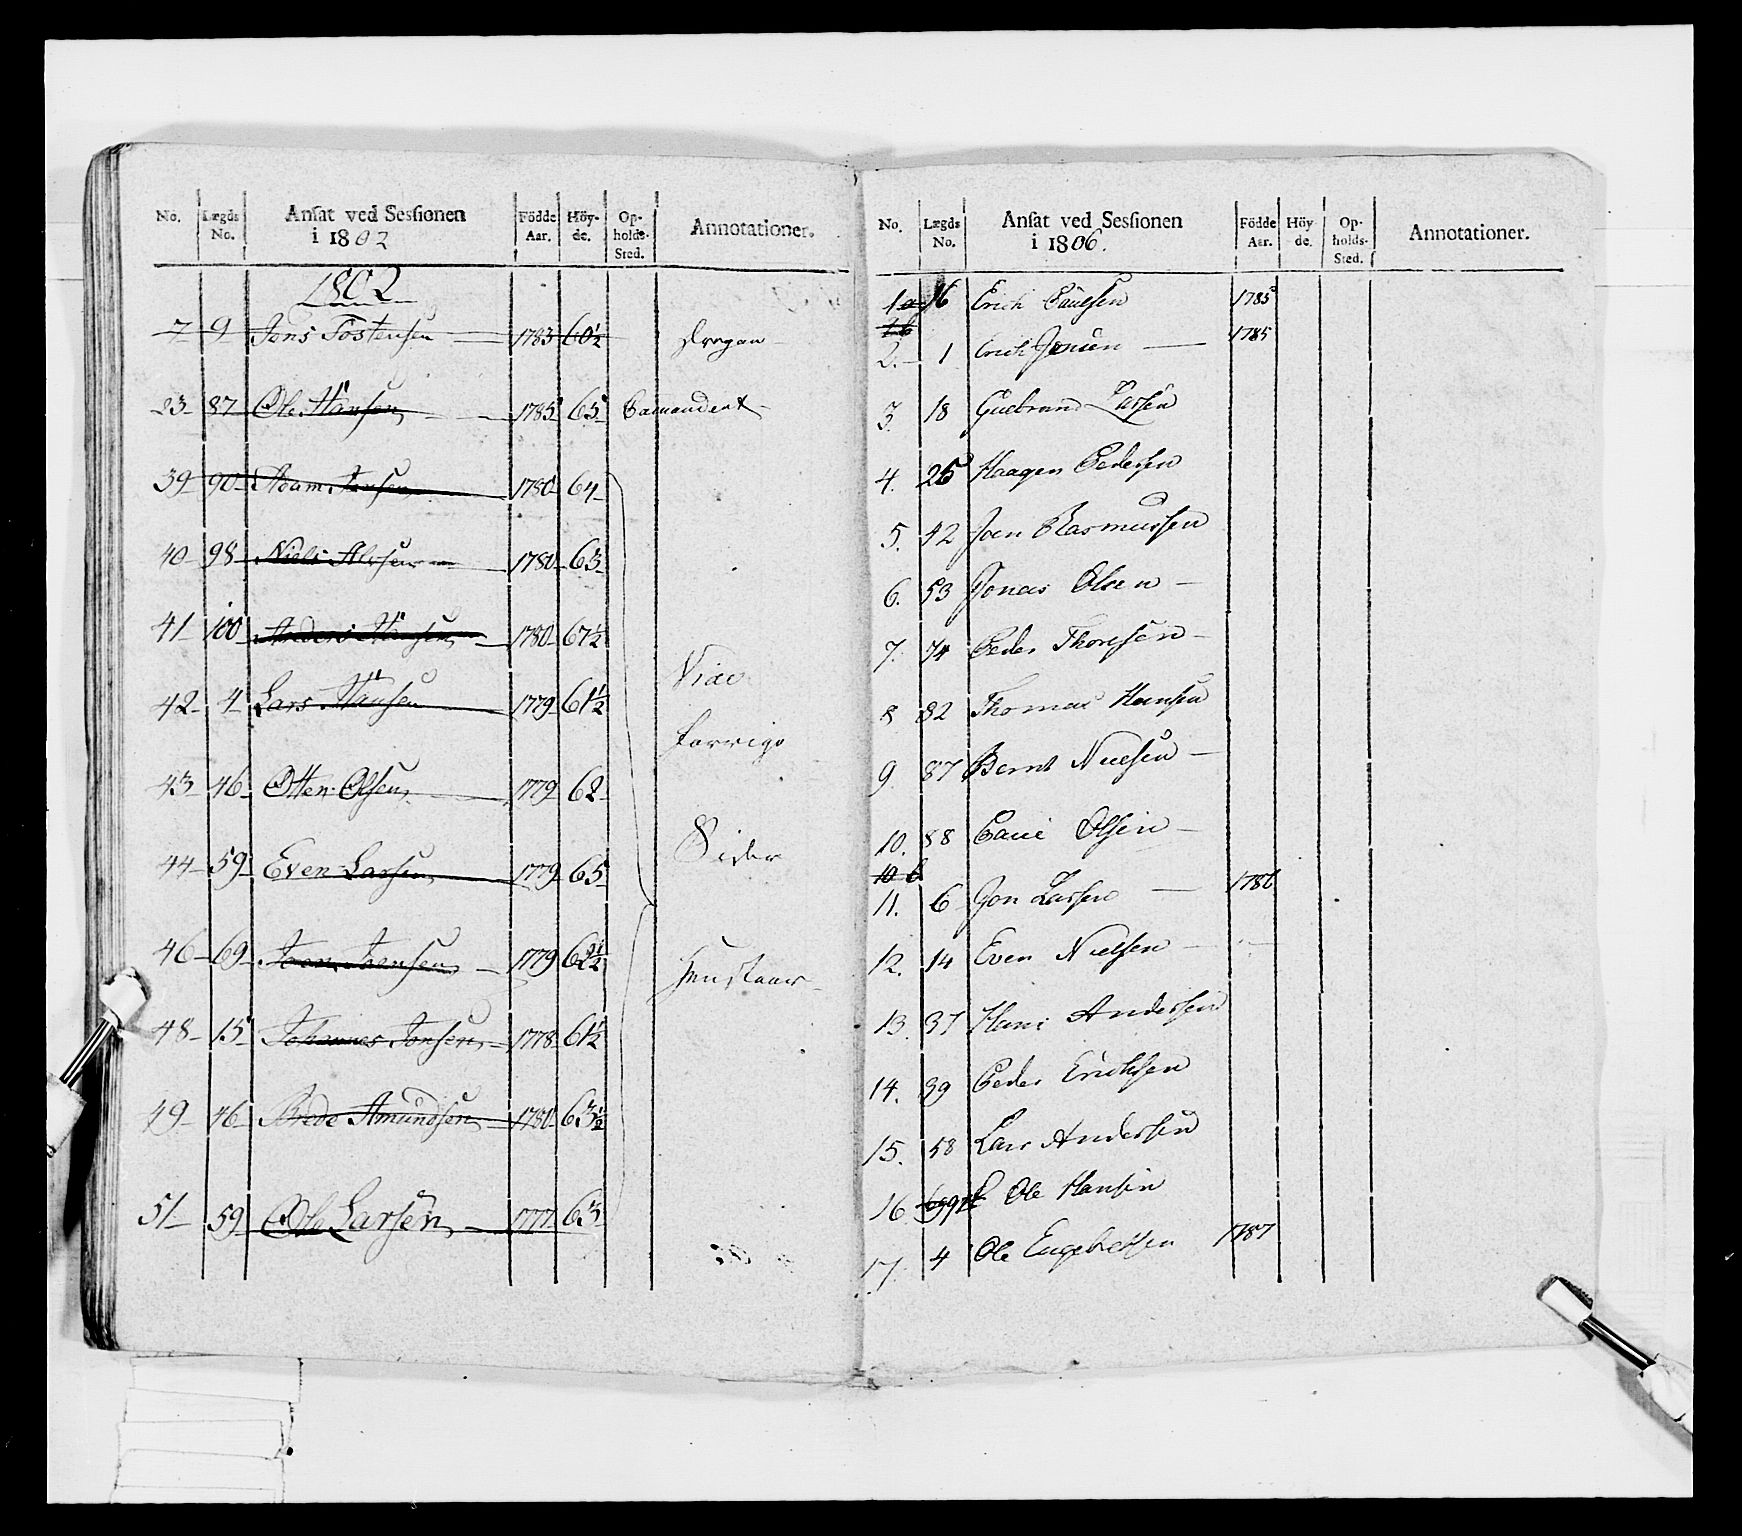 No. Lægds No. Ansat ved Sessionen i 1802 Födde Aar. Höyde. Opholds-Sted. Annotationer.
1802
7 9 Jens Tostensen 1783 60½
23 87 Ole Hansen 1785 65 Comandert
39 90 Adam Jensen 1780 64
40 98 Niels Alvsen 1780 63
41 100 Anders Hansen 1780 67½
42 4 Lars Hansen 1779 61½
43 46 Otten Olsen 1779 62
44 59 Even Larsen 1779 65
46 69 Joen Joensen 1779 62½
48 15 Johannes Jonsen 1778 61½
49 46 Brede Amundsen 1780 63½
51 59 Ole Larsen 1777 63
No. Lægds No. Ansat ved Sessionen i 1806. Födde Aar. Höyde. Opholds-Sted. Annotationer.
1 16 Erich Paulsen 1785
2. 1 Erich Jensen 1785
3. 18 Guebrand Larsen
4. 25 Haagen Pedersen
5. 42 Joen Rasmussen
6. 53 Jonas Olsen
7. 74 Peder Thoresen
8 82 Thomas Hansen
9 87 Bernt Nielsen
10. 88 Paul Olsen
11. 6 Jon Larsen 1786
12. 14 Even Nielsen
13. 37 Hans Andersen
14. 39 Peder Erichsen
15. 58 Lars Andersen
16 Ole Hansen
17. 4 Ole Engebretsen 1787